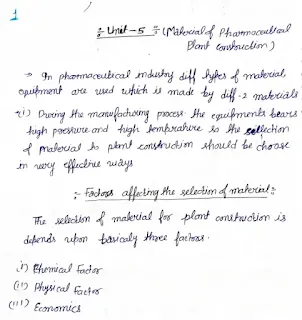 1
:- Unit - 5 :- (Material of Pharmaceutical
Plant Construction)
→ In pharmaceutical industry diff types of material
equipment are used which is made by diff-2 materials
(i) During the manufacturing process the equipments bears
high pressure and high temprature so the selection
of material to plant construction should be choose
in very effective ways
:- Factors affecting the selection of material:-
The selection of material for plant construction is
depends upon basicaly three factors.
(i) Chemical Factor
(ii) Physical Factor
(iii) Economics